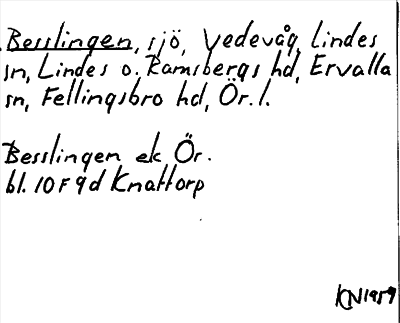 Besslingen, sjö, Vedevåg, Lindes
sn, Lindes o. Ramsbergs hd, Ervalla
sn, Fellingsbro hd, Ör. l.
Besslingen ek Ör.
bl. 10F9d Knattorp
KN1959